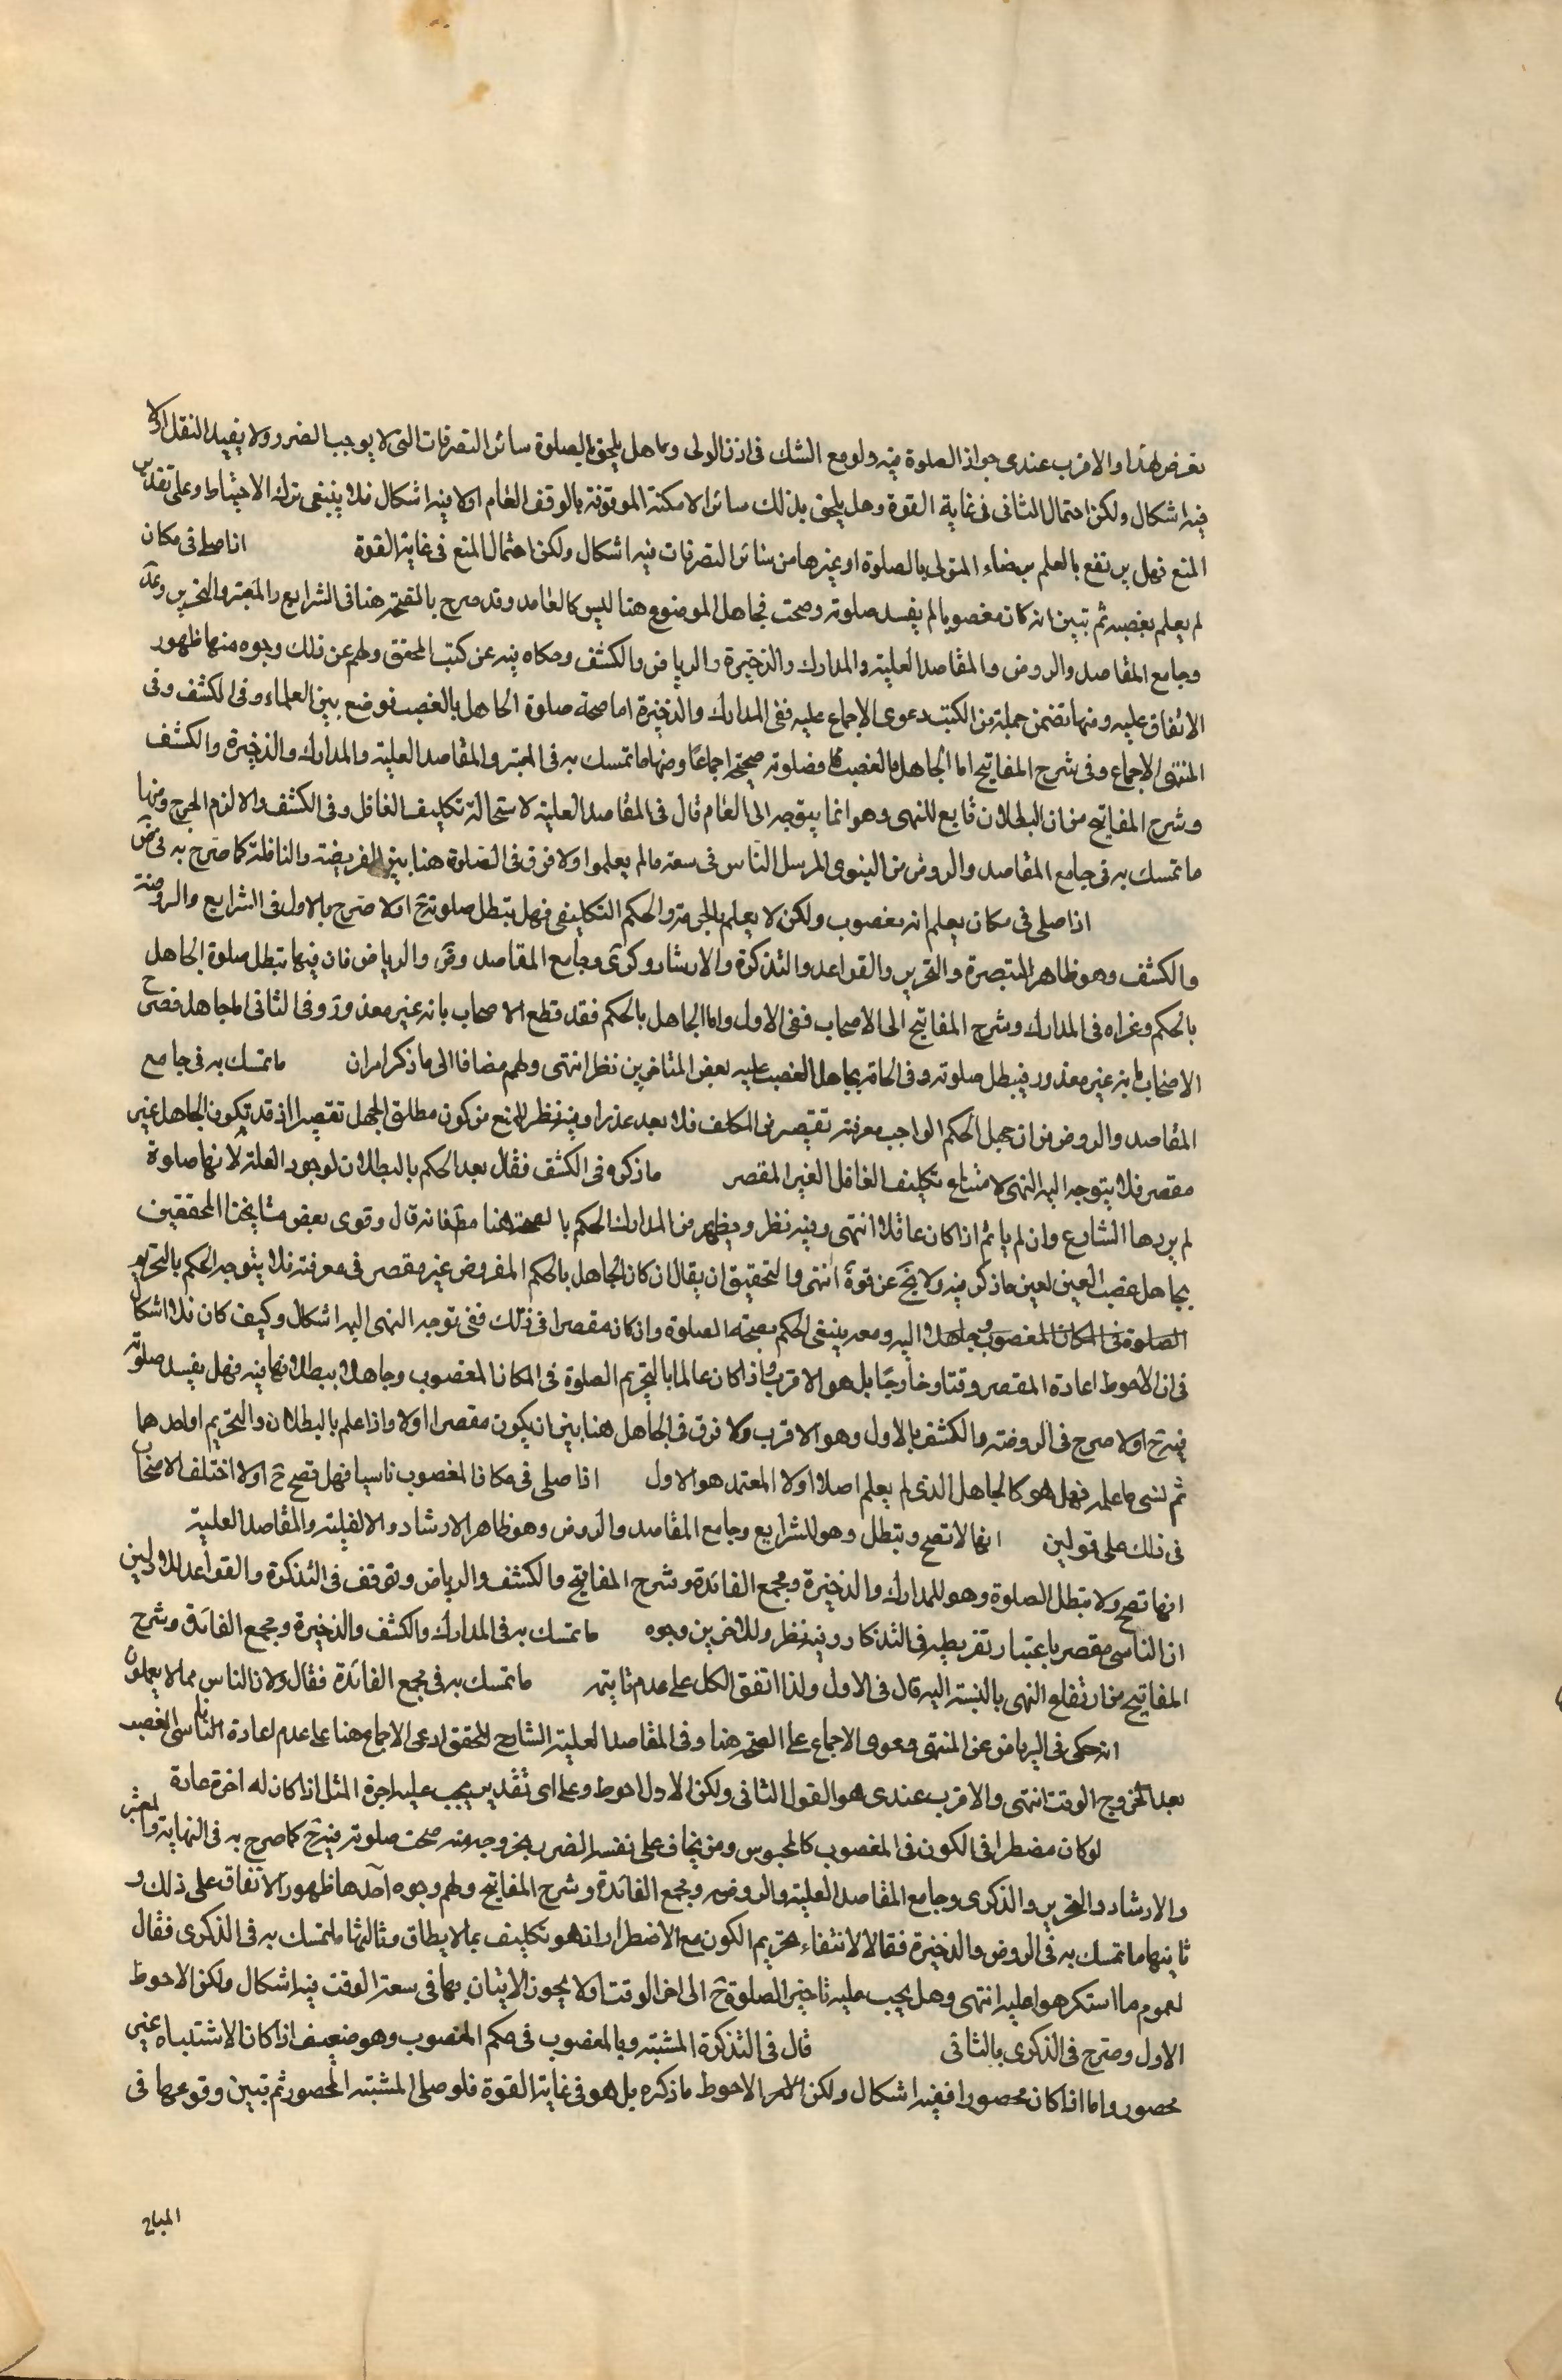 تعرض لهذا والاقرب عندى جواز الصلوة فيه ولو مع الشك فى اذن الولى وما هل يلحق بالصلوة سائر التصرفات التى لا يوجب الضرر ولا يفيد النقل الا
فيه اشكال ولكن احتمال الثانى فى غاية القوة وهل يلحق بذلك سائر الامكنة الموقوفة بالوقف العام اولا فيه اشكال فلا ينبغى ترك الاحتياط وعلى تقدير
المنع فهل يرتفع بالعلم برضاء المتولى بالصلوة او غيرها من سائر التصرفات فيه اشكال ولكن احتمال المنع فى غاية القوة اذا صلى فى مكان
لم يعلم بغصبه ثم تبين انه كان مغصوبا لم يفسد صلوته وصحت فجاهل الموضوع هنا ليس كالعامد وقد صرح بالصحة هنا فى الشرايع والمعتبر والتحرير وعد
وجامع المقاصد والروض والمقاصد العلية والمدارك والذخيرة والرياض والكشف وحكاه فيه عن كتب المحقق ولهم عن ذلك وجوه منها ظهور
الاتفاق عليه ومنها تضمن جملة من الكتب دعوى الاجماع عليه ففى المدارك والذخيرة اما صحة صلوة الجاهل بالغصب فوضع بين العلماء وفى الكشف وفى
المنتهى الاجماع وفى شرح المفاتيح اما الجاهل بالغصب فصلوته صحيحة اجماعًا ومنها ما تمسك به فى المعتبر والمقاصد العلية والمدارك والذخيرة والكشف
وشرح المفاتيح من ان البطلان تابع للنهى وهو انما يتوجه الى العالم قال فى المقاصد العلية لاستحالة تكليف الغافل وفى الكشف والا لزم الحرج ومنها
ما تمسك به فى جامع المقاصد والروض من النبوى المرسل الناس فى سعة مالم يعلموا ولا فرق فى الصلوة هنا بين الفريضة والنافلة كما صرح به فى ض
اذا صلى فى مكان يعلم انه مغصوب ولكن لا يعلم بالحرمة والحكم التكليفى فهل تبطل صلوته ح اولا صرح بالاول فى الشرايع والروضة
والكشف وهو ظاهر التبصرة والتحرير والقواعد والتذكرة والارشاد وكرى وجامع المقاصد وض والرياض فان فيها تبطل صلوة الجاهل
بالحكم وعزاه فى المدارك وشرح المفاتيح الى الاصحاب ففى الاول واما الجاهل بالحكم فقد قطع الاصحاب بانه غير معذور وفى الثانى الجاهل فصرح
الاصحاب بانه غير معذور فيبطل صلوته وفى الحاقه بجاهل الغصب عليه بعض المتاخرين نظر انتهى ولهم مضافا الى ما ذكر امران ما تمسك به فى جامع
المقاصد والروض من ان جهل الحكم الواجب معرفته تقصير من المكلف فلا يعد عذرا وفيه نظر للمنع من كون مطلق الجهل تقصيرا اذ قد تكون الجاهل غير
مقصر فلا يتوجه اليه النهى لامتناع تكليف الغافل الغير المقصر ما ذكره فى الكشف فقال بعد الحكم بالبطلان لوجود العلة لانها صلوة
لم يردها الشارع وان لم ياثم اذا كان غافلا انتهى وفيه نظر ويظهر من المدارك الحكم بالصحة هنا مط فانه قال وقوى بعض مشايخنا المحققين
بجاهل غصب العين لعين ما ذكر فيه ولا يخ عن قوة انتهى والتحقيق ان يقال ان كان الجاهل بالحكم المفروض غير مقصر فى معرفته فلا يتوجه الحكم بالتحريم
الصلوة فى المكان المغصوب وجاهلا اليه ومعه ينبغى الحكم بصحة الصلوة وان كان مقصرا فى ذلك ففى توجه النهى اليه اشكال وكيف كان فلا اشكال
فى ان الاحوط اعادة المقصر وقتا وخارجًا بل هو الاقرب واذا كان عالما بالتحريم الصلوة فى المكان المغصوب وجاهلا ببطلانها فيه فهل يفسد صلوته
فيه ح اولا صرح فى الروضة والكشف بالاول وهو الاقرب ولا فرق فى الجاهل هنا بين ان يكون مقصرا اولا واذا علم بالبطلان والتحريم او احدهما
ثم نسى ما علمه فهل هو كالجاهل الذى لم يعلم اصلا اولا المعتمد هو الاول اذا صلى فى مكان المغصوب ناسيا فهل تصح ح اولا اختلف الاصحاب
فى ذلك على قولين انها لا تصح وتبطل وهو للشرايع وجامع المقاصد والروض وهو ظاهر الارشاد والالفية والمقاصد العلية
انها تصح ولا تبطل الصلوة وهو للمدارك والذخيرة ومجمع الفائدة وشرح المفاتيح والكشف والرياض وتوقف فى التذكرة والقواعد للاولين
ان الناسى مقصر باعتبار تفريطه فى التذكار وفيه نظر وللاخرين وجوه ما تمسك به فى المدارك والكشف والذخيرة ومجمع الفائدة وشرح
المفاتيح من ارتفاع النهى بالنسبة اليه قال فى الاول ولذا اتفق الكل على عدم تاثيمه ما تمسك به فى مجمع الفائدة فقال ولان الناس مما لا يعلمون
انه حكى فى الرياض عن المنتهى دعوى الاجماع على الصحة هنا وفى المقاصد العلية الشارح المحقق ادعى الاجماع هنا على عدم اعادة الناسى للغصب
بعد خروج الوقت انتهى والاقرب عندى هو القول الثانى ولكن الاول احوط وعلى اى تقدير يجب عليه اجرة المثل اذا كان له اجرة عادة
لو كان مضطرا فى الكون فى المغصوب كالمحبوس ومن يخاف على نفسه الضرر بخروجه منه صحت صلوته فيه ح كما صرح به فى النهاية والمعتبر
والارشاد والتحرير والذكرى وجامع المقاصد العلية والروض ومجمع الفائدة وشرح المفاتيح ولهم وجوه احدها ظهور الاتفاق على ذلك و
ثانيها ما تمسك به فى الروض والذخيرة فقالا لانتفاء تحريم الكون مع الاضطرار اذ هو تكليف بما لا يطاق وثالثها ما تمسك به فى الذكرى فقال
لعموم ما استكرهوا عليه انتهى وهل يجب عليه تاخير الصلوة ح الى اخر الوقت اولا يجوز الاتيان بها فى سعة الوقت فيه اشكال ولكن الاحوط
الاول وصرح فى الذكرى بالثانى قال فى التذكرة المشتبه وبالمغصوب فى حكم المغصوب وهو ضعيف اذا كان الاشتباه غير
محصور واما اذا كان محصورا ففيه اشكال ولكن الامر الاحوط ما ذكره بل هو فى غاية القوة فلو صلى المشتبه المحصور ثم تبين وقوعها فى
المباح